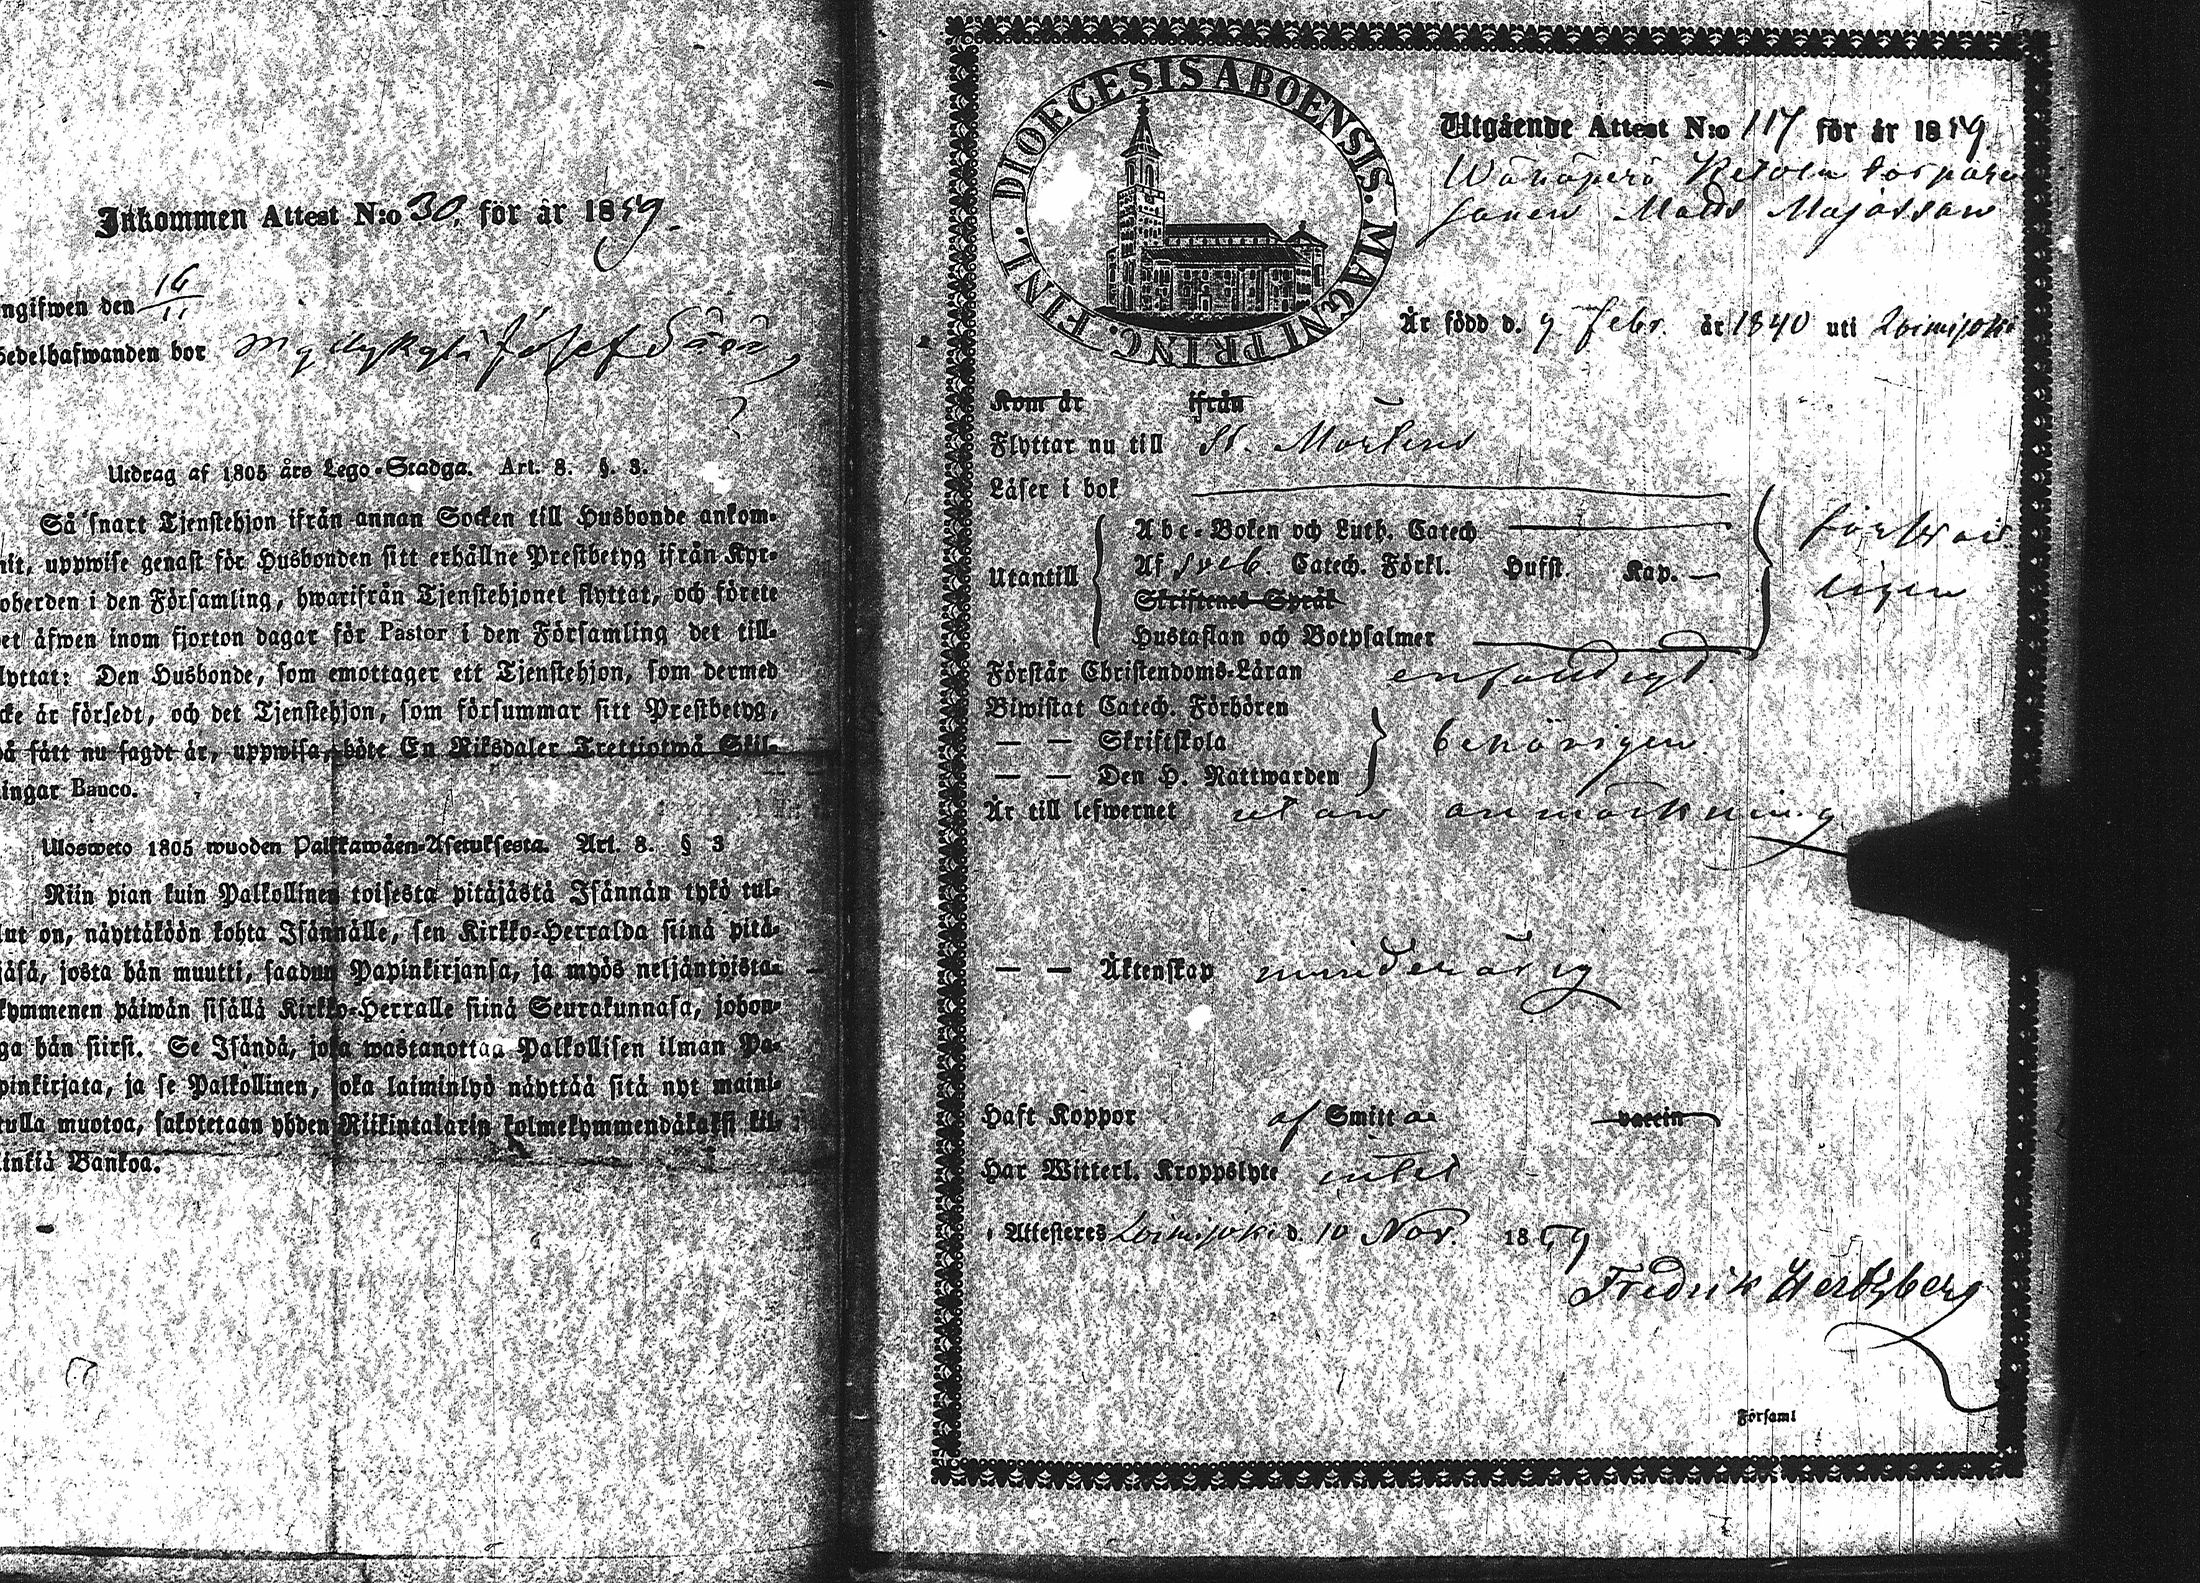 Inkommen Attest N:o 30, för år 1859.
ngifwen den 16/11
Sedelhafwanden bor
Utdrag af 1805 års Lego-Stadga. Art. 8. §. 3.
Så snart Tjenstehjon ifrån annan Socken till Husbonde ankom-
mit, uppwise genast för Husbonden sitt erhållne Prestbetyg ifrån Kyr-
koherden i den Församling, hwarifrån Tjenstehjonet flyttat, och förete
det äfwen inom fjorton dagar för Pastor i den Församling det till-
flyttat: Den Husbonde, som emottager ett Tjenstehjon, som dermed
icke är försedt, och det Tjenstehjon, som försummar sitt Prestbetyg,
på sätt nu sagdt är, uppwisa, böte En Riksdaler Trettiotwå Skil-
lingar Banco.
Ulosweto 1805 wuoden Palkkawäen-Asetuksesta. Art. 8. § 3
Niin pian kuin Palkollinen toisesta pitäjästä Isännän tykö tul-
lut on, näyttäköön kohta Isännälle, sen Kirkko-Herralda siinä pitä-
jäsä, josta hän muutti, saadun Papinkirjansa, ja myös neljäntoista-
kymmenen päiwän sisällä Kirkko-Herralle siinä Seurakunnasa, johon-
ga hän siirsi. Se Isändä, joka wastanottaa Palkollisen ilman Pa-
pinkirjata, ja se Palkollinen, joka laiminlyö näyttää sitä nyt maini-
tulla muotoa, sakotetaan yhden Riikintalarin kolmekymmendäkaksi kil-
linkiä Bankoa.
FINL. DIOECESIS ABOENSIS. MAGNI PRINC.
Utgående Attest N:o 117 för år 1859
Torpare
sonen Matts Majasson
Är född d. 7 Febr. år 1840 uti Loimijoki
Kom år ifrån
Flyttar nu till St. Mårtens
Läser i bok
Abc-Boken och Luth. Catech
Utantill Af Sveb. Catech. Förkl. Hufst. Kap. —
försvar-
ligen
Skriftenes Språk
Hustaflan och Botpsalmer
Förstår Christendoms-Läran enfaldigt.
Biwistat Catech. Förhören
— — Skriftskola behörigen.
— — Den H. Nattwarden
Är till lefwernet utan anmärkning
— — Äktenskap minderårig
Haft Koppor af Smitta vaccin
Har Witterl. Kroppslyte intet
Attesteres Loimijoki d. 10 Nov. 1859
Fredrik Hertzberg
Församl